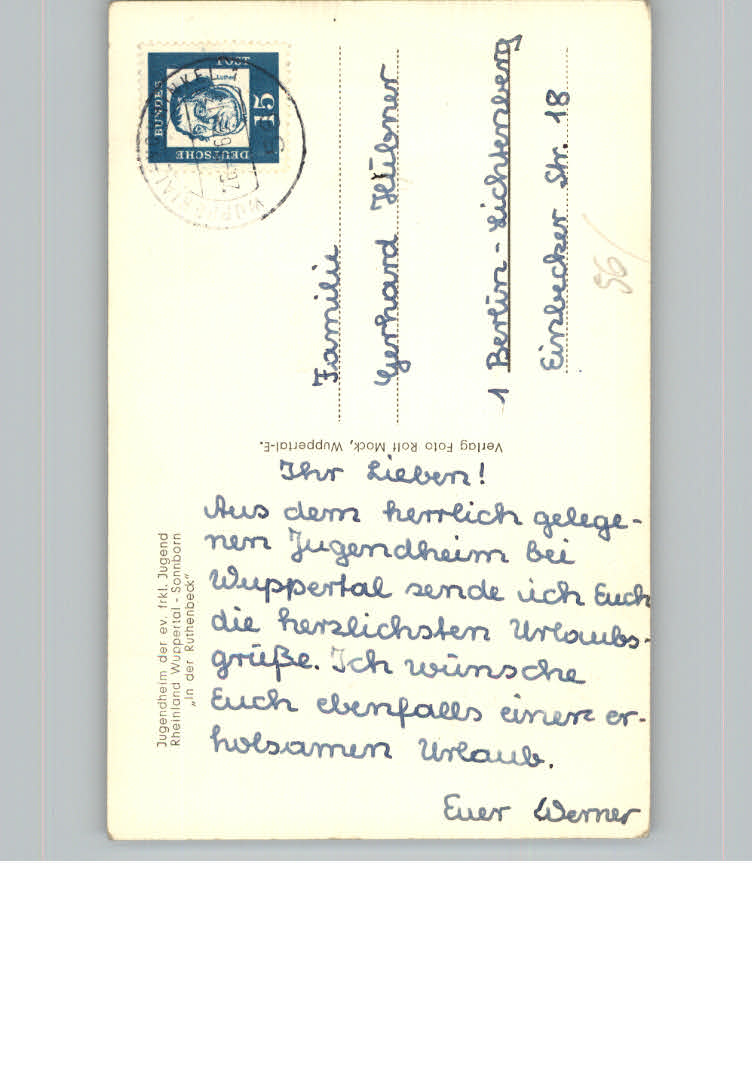 Jugendheim der ev. frkl. Jugend
Rheinland Wuppertal - Sonnborn
„In der Ruthenbeck“
Ihr Lieben!
Aus dem herrlich gelege-
nen Jugendheim bei
Wuppertal sende ich Euch
die herzlichsten Urlaubs-
grüße. Ich wünsche
Euch ebenfalls einen er-
holsamen Urlaub.
Euer Werner
Verlag Foto Rolf Mock, Wuppertal-E.
Familie
Gerhard Hübner
1 Berlin-Lichtenberg
Einbecker Str. 18
DEUTSCHE
BUNDES
POST
15
96/